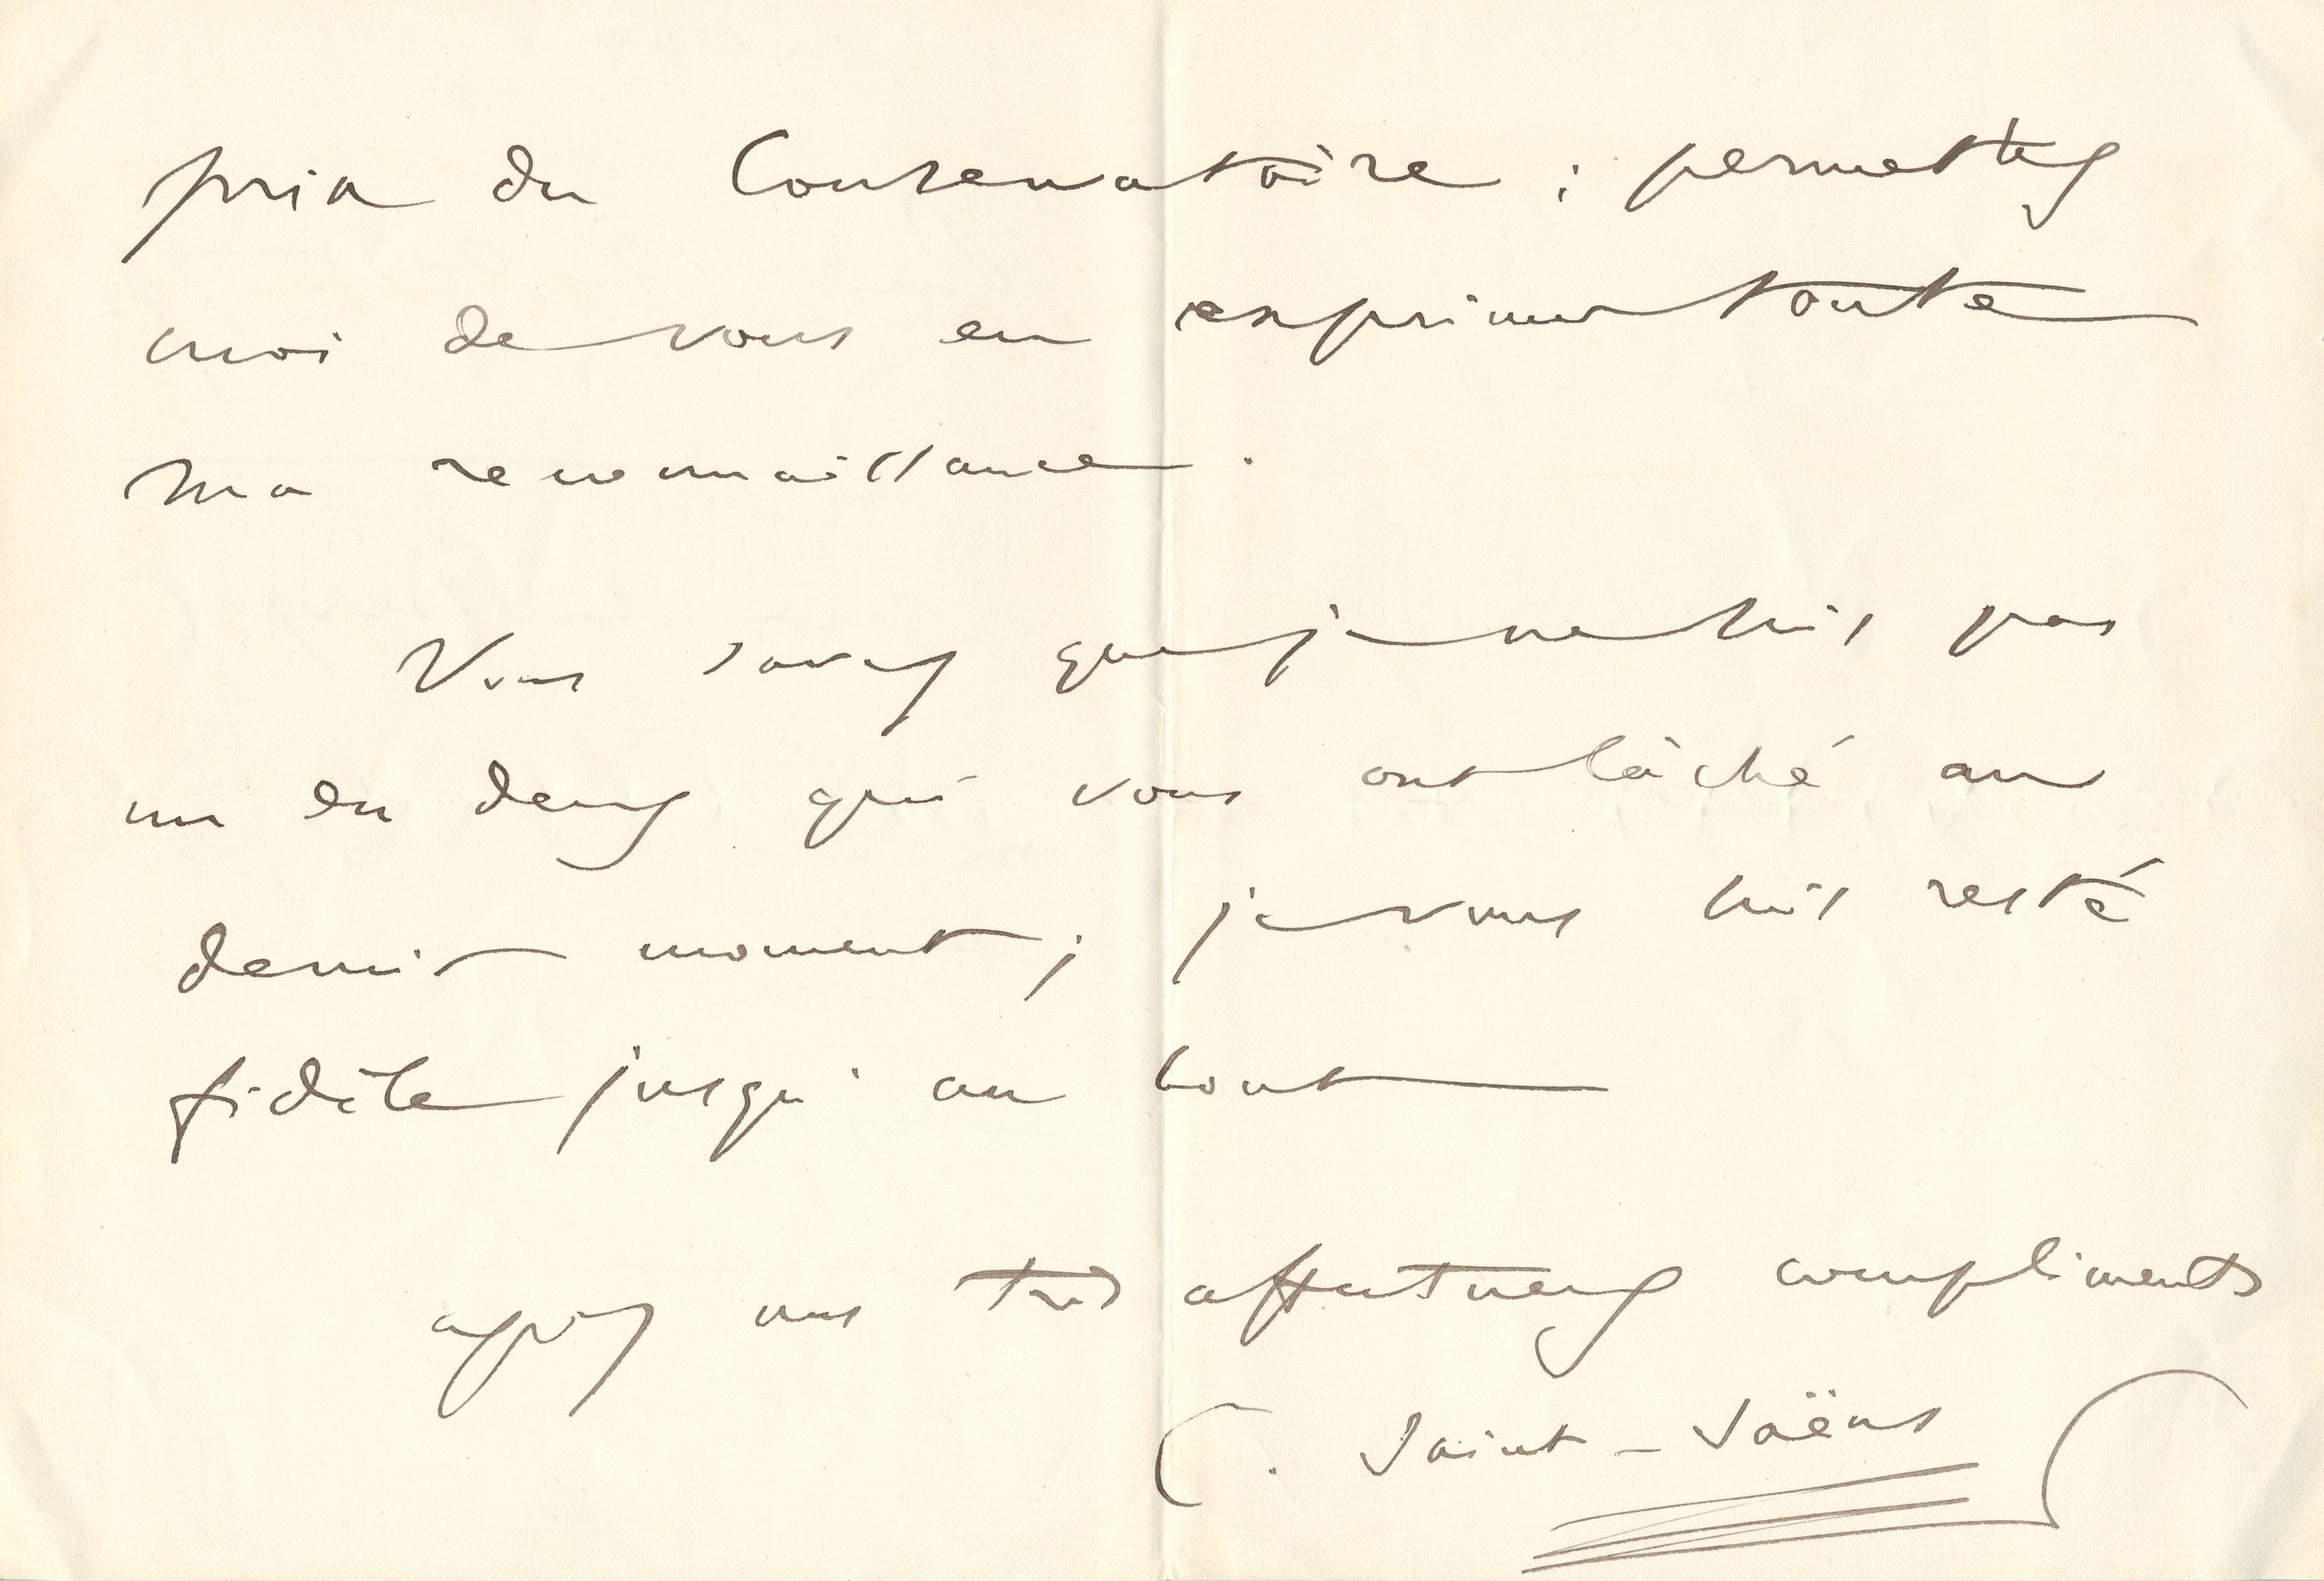 prix du Conservatoire ; permettez
moi de vous en exprimer toute
ma reconnaissance.
Vous savez que je ne suis pas
un de ceux qui vous ont lâché au
dernier moment ; je vous suis resté
fidèle jusqu'au bout
agréez mes très affectueux compliments
C. Saint-Saëns